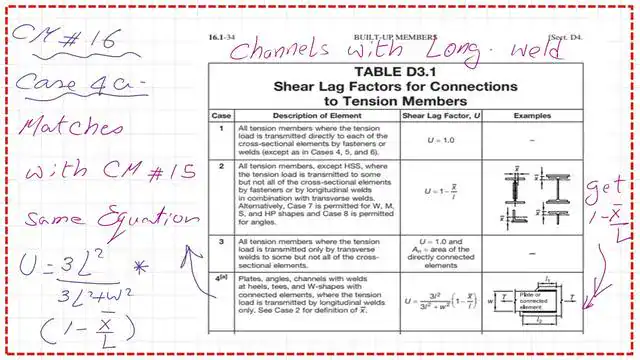 CM #16
Case 4a-
Matches
with CM #15
same Equation
U = 3L²
3L²+W² *
(1 - x̄
L)
channels with Long. weld
get
1 - x̄
L
16.1-34 BUILT-UP MEMBERS [Sect. D4.
TABLE D3.1
Shear Lag Factors for Connections
to Tension Members
Case Description of Element Shear Lag Factor, U Examples
1 All tension members where the tension
load is transmitted directly to each of the
cross-sectional elements by fasteners or
welds (except as in Cases 4, 5, and 6).
U = 1.0
–
2 All tension members, except HSS, where
the tension load is transmitted to some
but not all of the cross-sectional elements
by fasteners or by longitudinal welds
in combination with transverse welds.
Alternatively, Case 7 is permitted for W, M,
S, and HP shapes and Case 8 is permitted
for angles.
U = 1 – x̄
l
x̄ x̄
3 All tension members where the tension
load is transmitted only by transverse
welds to some but not all of the cross-
sectional elements.
U = 1.0 and
Aₙ = area of the
directly connected
elements
–
4[a] Plates, angles, channels with welds
at heels, tees, and W-shapes with
connected elements, where the tension
load is transmitted by longitudinal welds
only. See Case 2 for definition of x̄.
U = 3l²
3l² + w² (1 – x̄
l)
l₁
w T Plate or
connected
element T
l₂